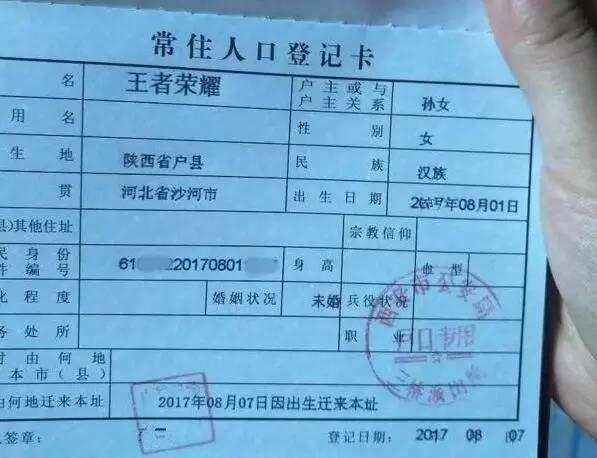 常住人口登记卡
名 王者荣耀 户主或与户主关系 孙女
用名 性别 女
生地 陕西省户县 民族 汉族
贯 河北省沙河市 出生日期 年08月01日
县)其他住址 宗教信仰
民身份件编号 61 20170801 身高 血型
化程度 婚姻状况 未婚 兵役状况
务处所 职业
时由何地
本市(县)
由何地迁来本址 2017年08月07日因出生迁来本址
人签章: 登记日期: 2017 08 07